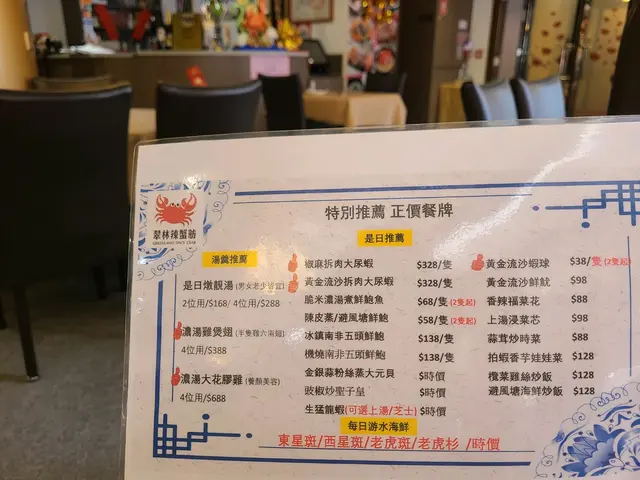 翠林辣蟹舫
特別推薦 正價餐牌
湯羹推薦
是日燉靚湯 (男女老少皆宜)
2位用/$168/ 4位用/$288
濃湯雞煲翅 (半隻雞六兩翅)
4位用/$388
濃湯大花膠雞 (養顏美容)
4位用/$688
是日推薦
椒麻拆肉大尿蝦 $328/隻
黃金流沙拆肉大尿蝦 $328/隻
脆米濃湯煮鮮鮑魚 $68/隻 (2隻起)
陳皮蒸/避風塘鮮鮑 $58/隻 (2隻起)
冰鎮南非五頭鮮鮑 $138/隻
機燒南非五頭鮮鮑 $138/隻
金銀蒜粉絲蒸大元貝 $時價
豉椒炒聖子皇 $時價
生猛龍蝦(可選上湯/芝士) $時價
黃金流沙蝦球 $38/隻 (2隻起)
黃金流沙鮮魷 $98
香辣福菜花 $88
上湯浸菜芯 $98
蒜茸炒時菜 $88
拍蝦香芋娃娃菜 $128
欖菜雞絲炒飯 $128
避風塘海鮮炒飯 $128
每日游水海鮮
東星斑/西星斑/老虎斑/老虎杉 /時價